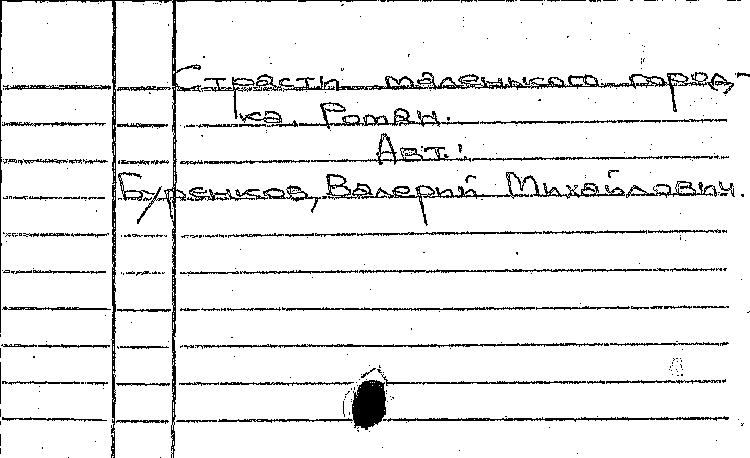 Страсти маленького город-
ка. Роман.
Авт.:
Буренков, Валерий Михайлович.